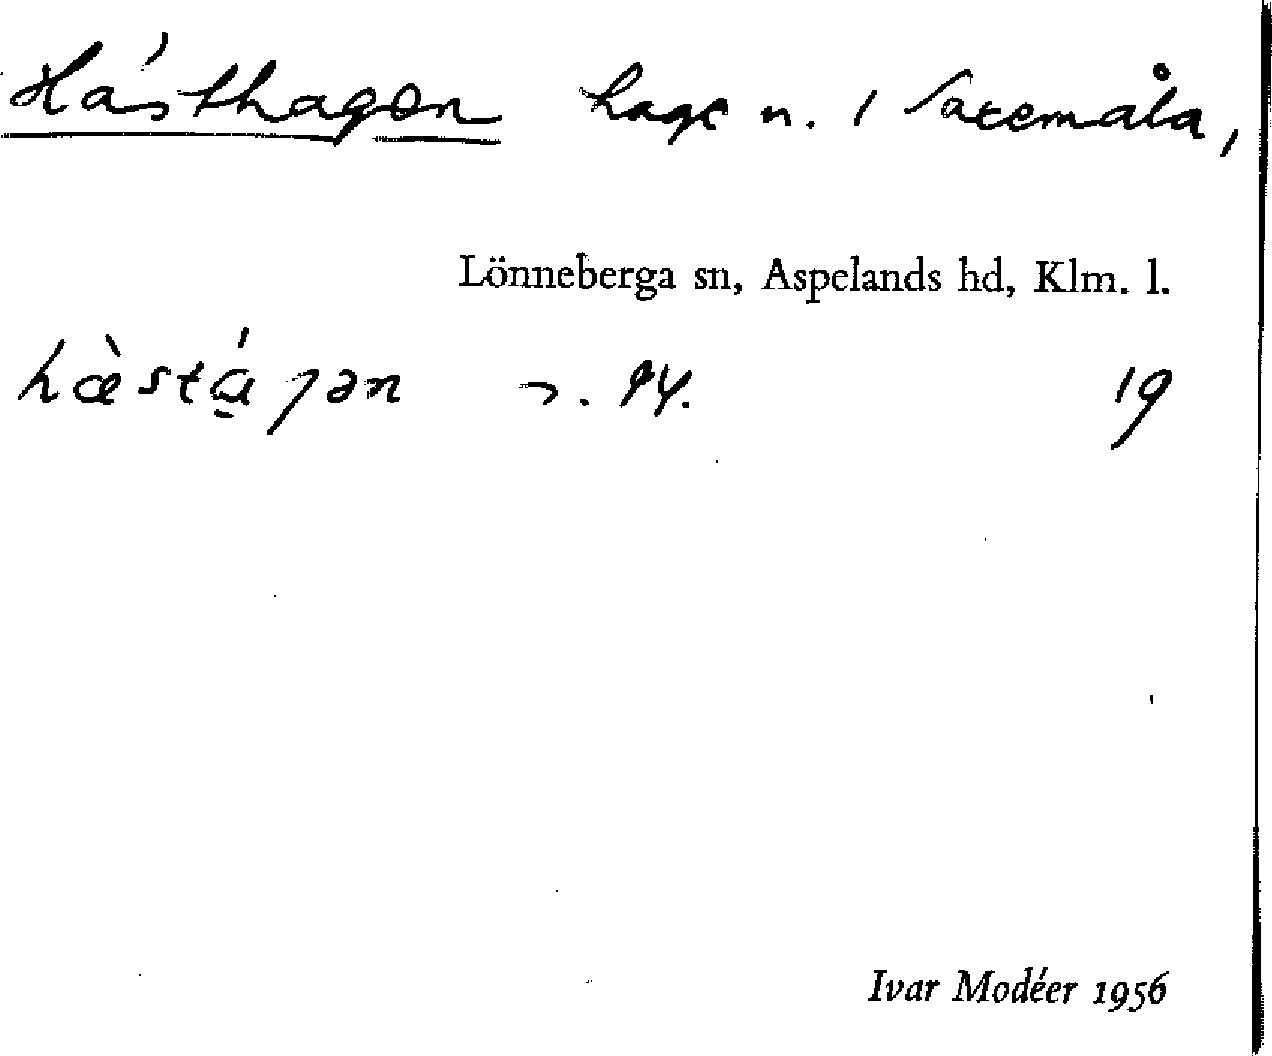 Hästhagen hage n. i Saxemåla,
Lönneberga sn, Aspelands hd, Klm. l.
hæ̀stá̱ɡən 19
Ivar Modéer 1956